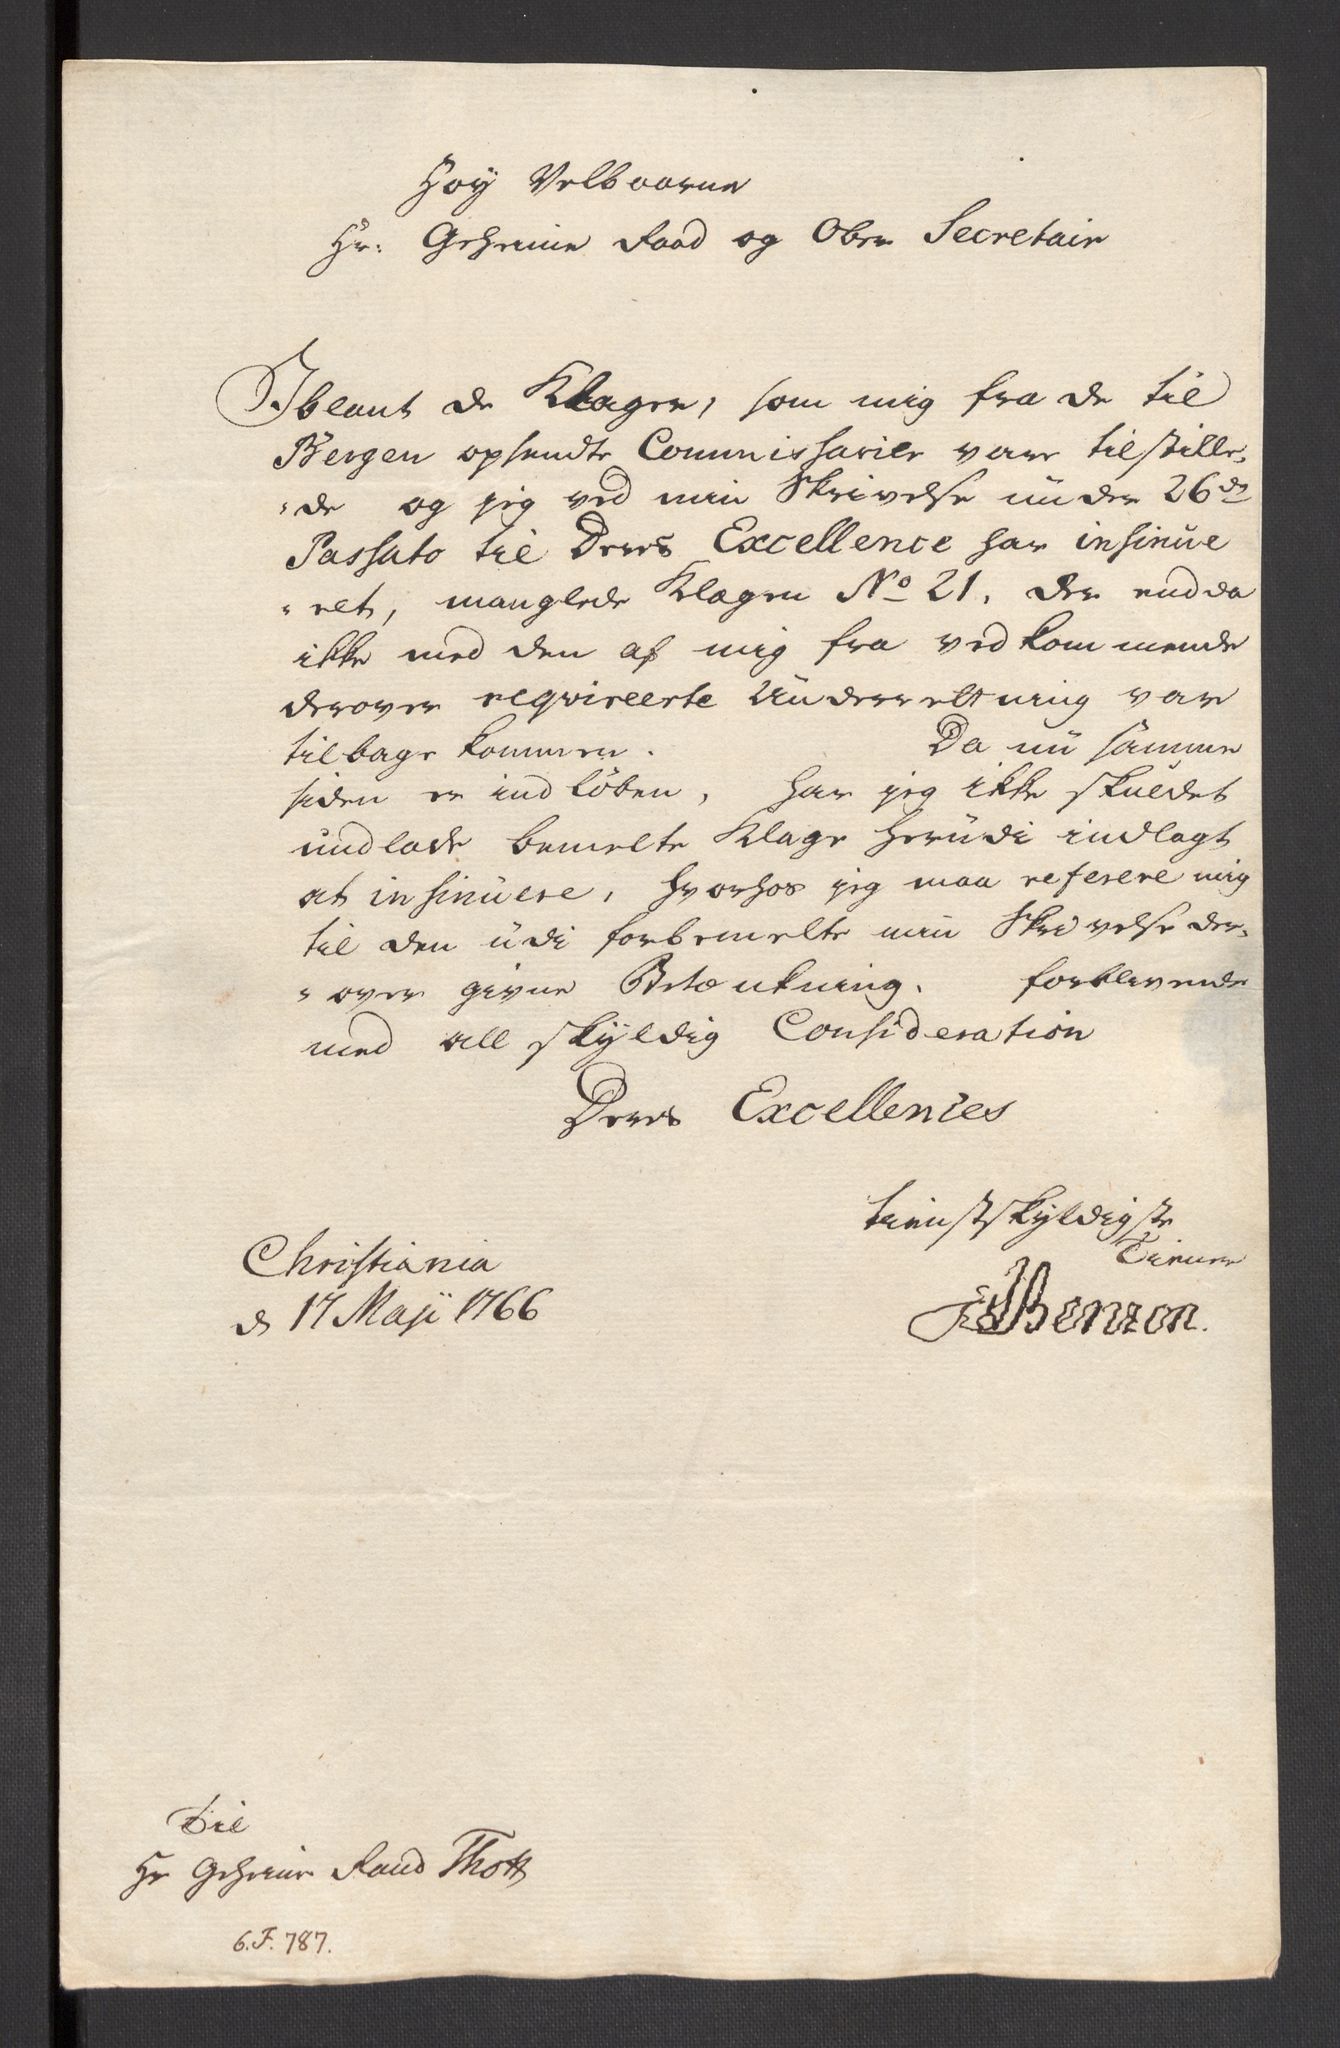 Høy Velbaarne
Hr: Geheime Raad og Ober Secretair
Iblant de Klager, som mig fra de til
Bergen opsendte Commissarier vare tilstille,
"de og jeg ved min Skrivelse under 26de
Passato til Deres Excellence har insinue
"ret, manglede Klagen No 21. der endda
ikke med den af mig fra vedkommende
derover reqvireerte Underretning var
tilbage kommen. Da nu samme
siden er indløben, har jeg ikke skuldet
undlade bemelte Klage herudi indlagt
at insinuere, hvorhos jeg maa referere mig
til den udi forbemelte min Skrivelse der,
"over givne Betænkning. forblivende
med all skyldig Consideration
Deres Excellences
tienstskyldigste
Tiener
JBenzon.
Christiania
d 17 Maji 1766
Til
Hr Geheime Raad Thott
6.F. 787.